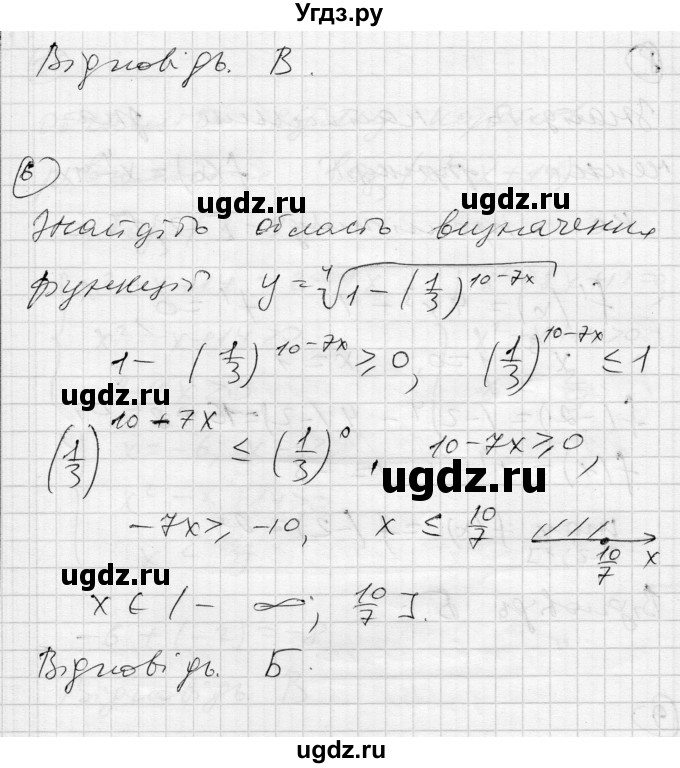 Угдз.ру
Відповідь. В.
6
ugdz.ru ugdz.ru
Знайдіть область визначення
функції y = ⁴√(1 − (1/3)^(10−7x))
1 − (1/3)^(10−7x) ⩾ 0, (1/3)^(10−7x) ≤ 1
ugdz.ru
(1/3)^(10−7x) ≤ (1/3)^0, 10−7x ⩾ 0,
ugdz.ru
−7x ⩾ −10, x ≤ 10/7 10/7 x
ugdz.ru ugdz.ru
x ∈ (−∞; 10/7].
Відповідь. Б.
ugdz.ru